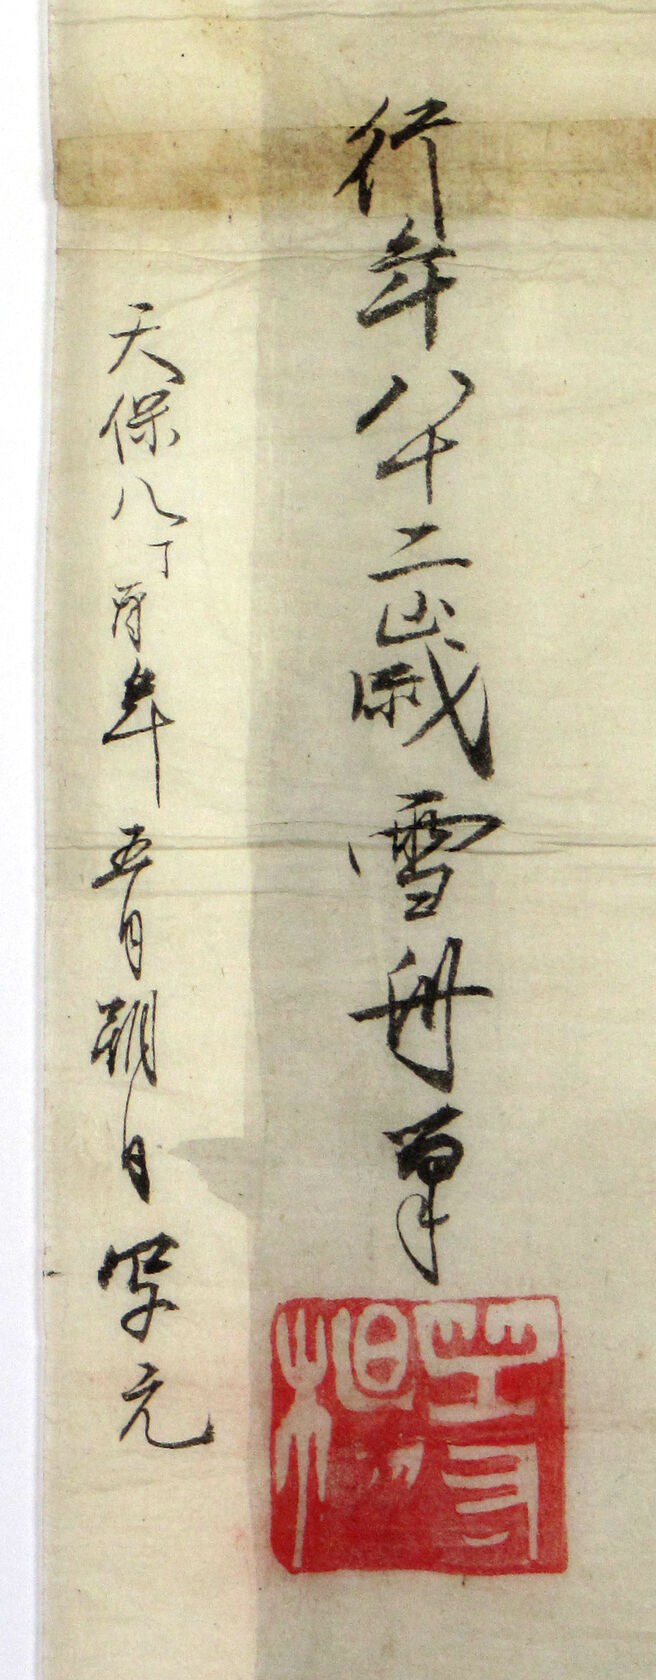 行年八十二歳雪舟筆
天保八丁酉年五月朔日写元